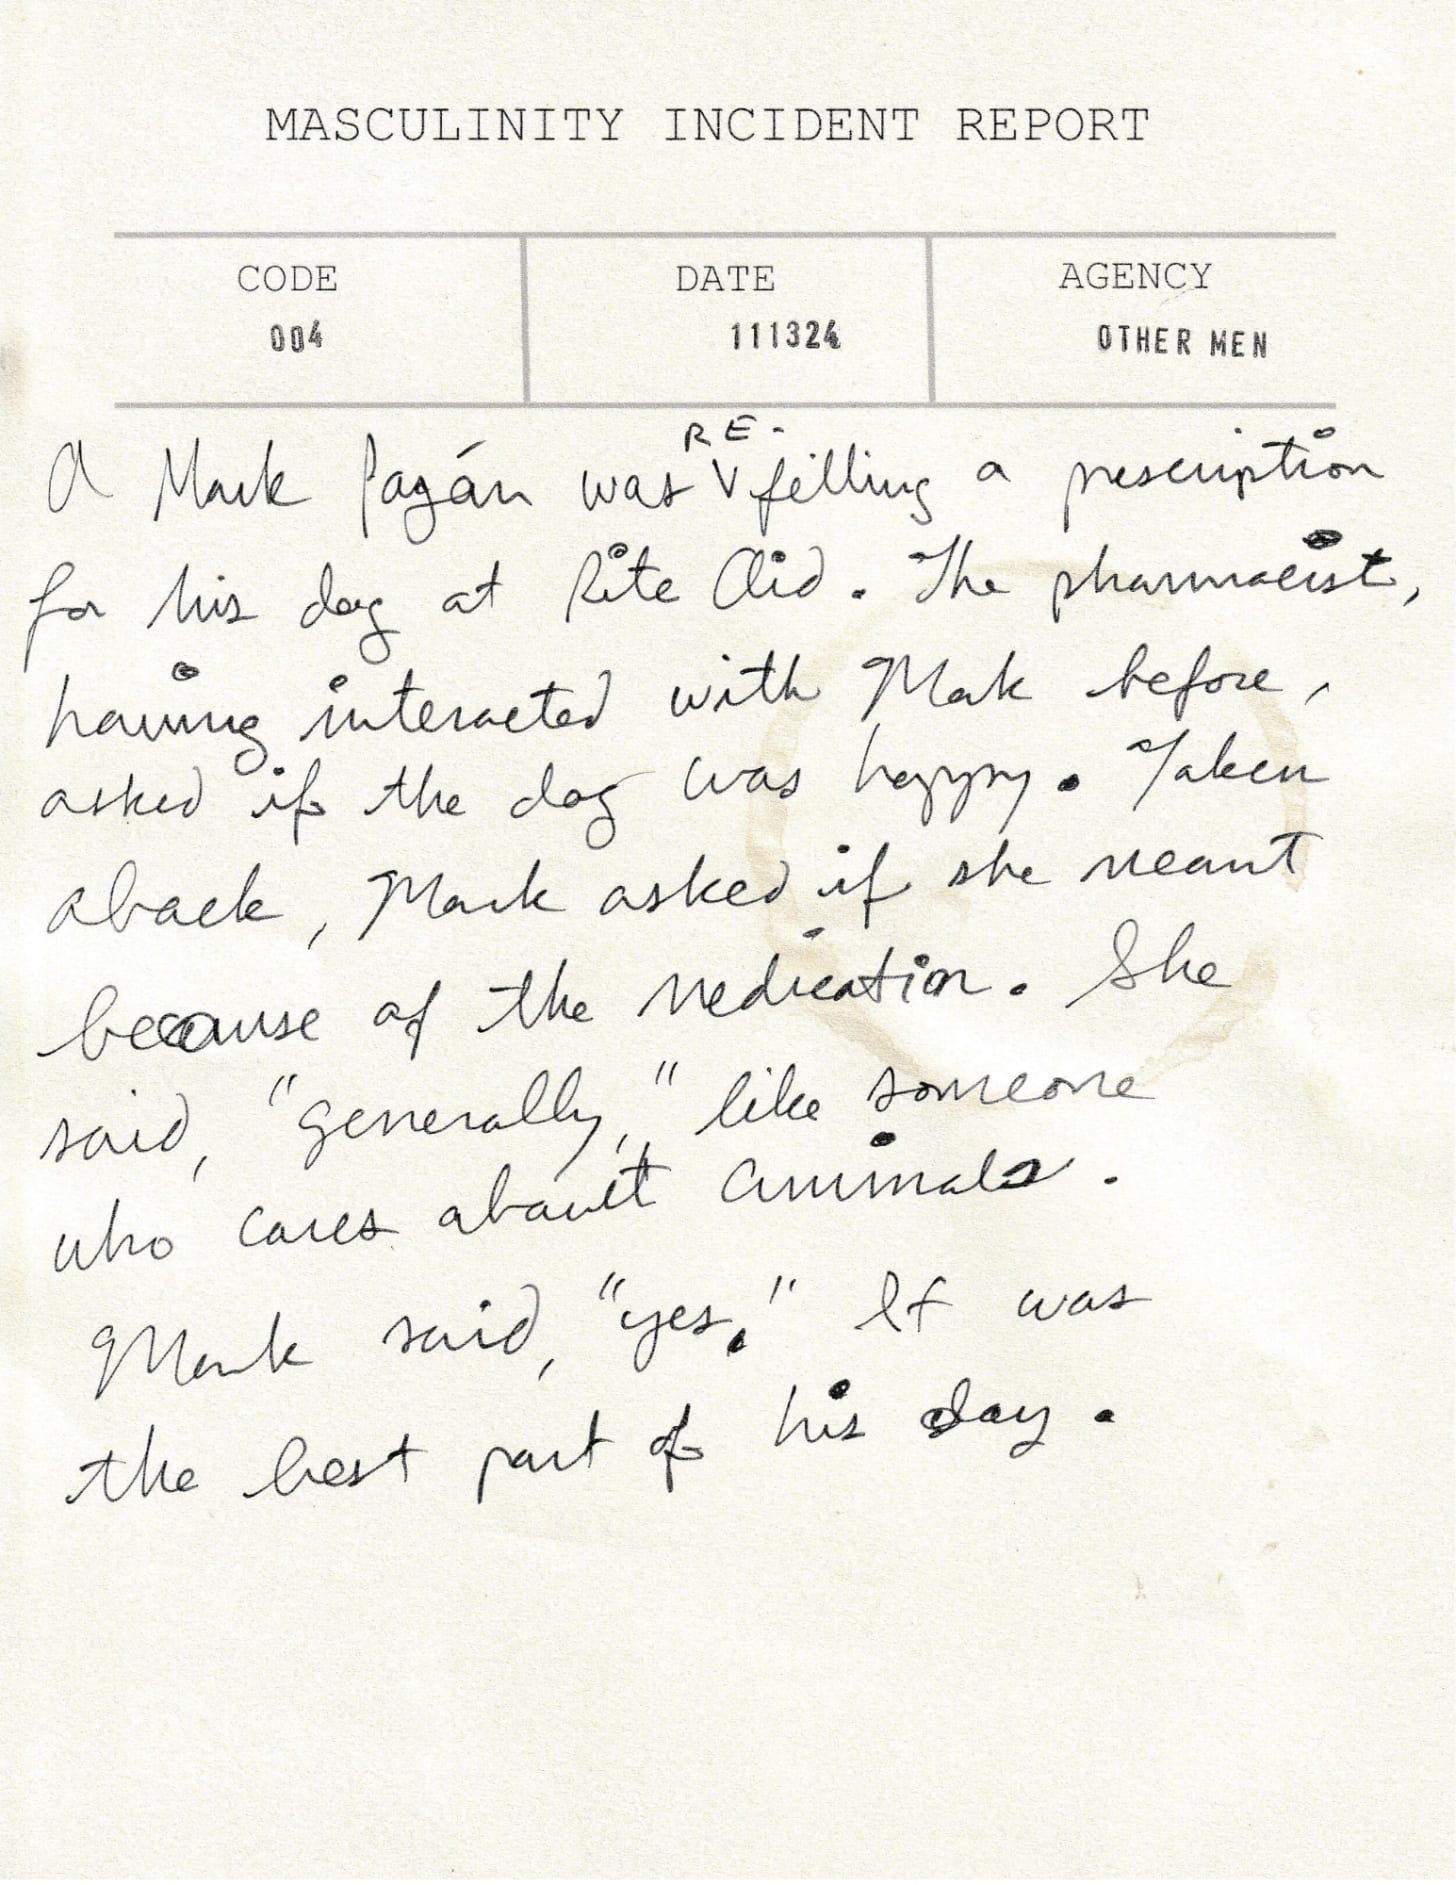 MASCULINITY INCIDENT REPORT
CODE DATE AGENCY
004 111324 OTHER MEN
RE-
A Mark Pagán was filling a prescription
for his dog at Rite Aid. The pharmacist,
having interacted with Mark before,
asked if the dog was happy. Taken
aback, Mark asked if she meant
because of the medication. She
said, "generally," like someone
who cares about animals.
Mark said, "yes." It was
the best part of his day.